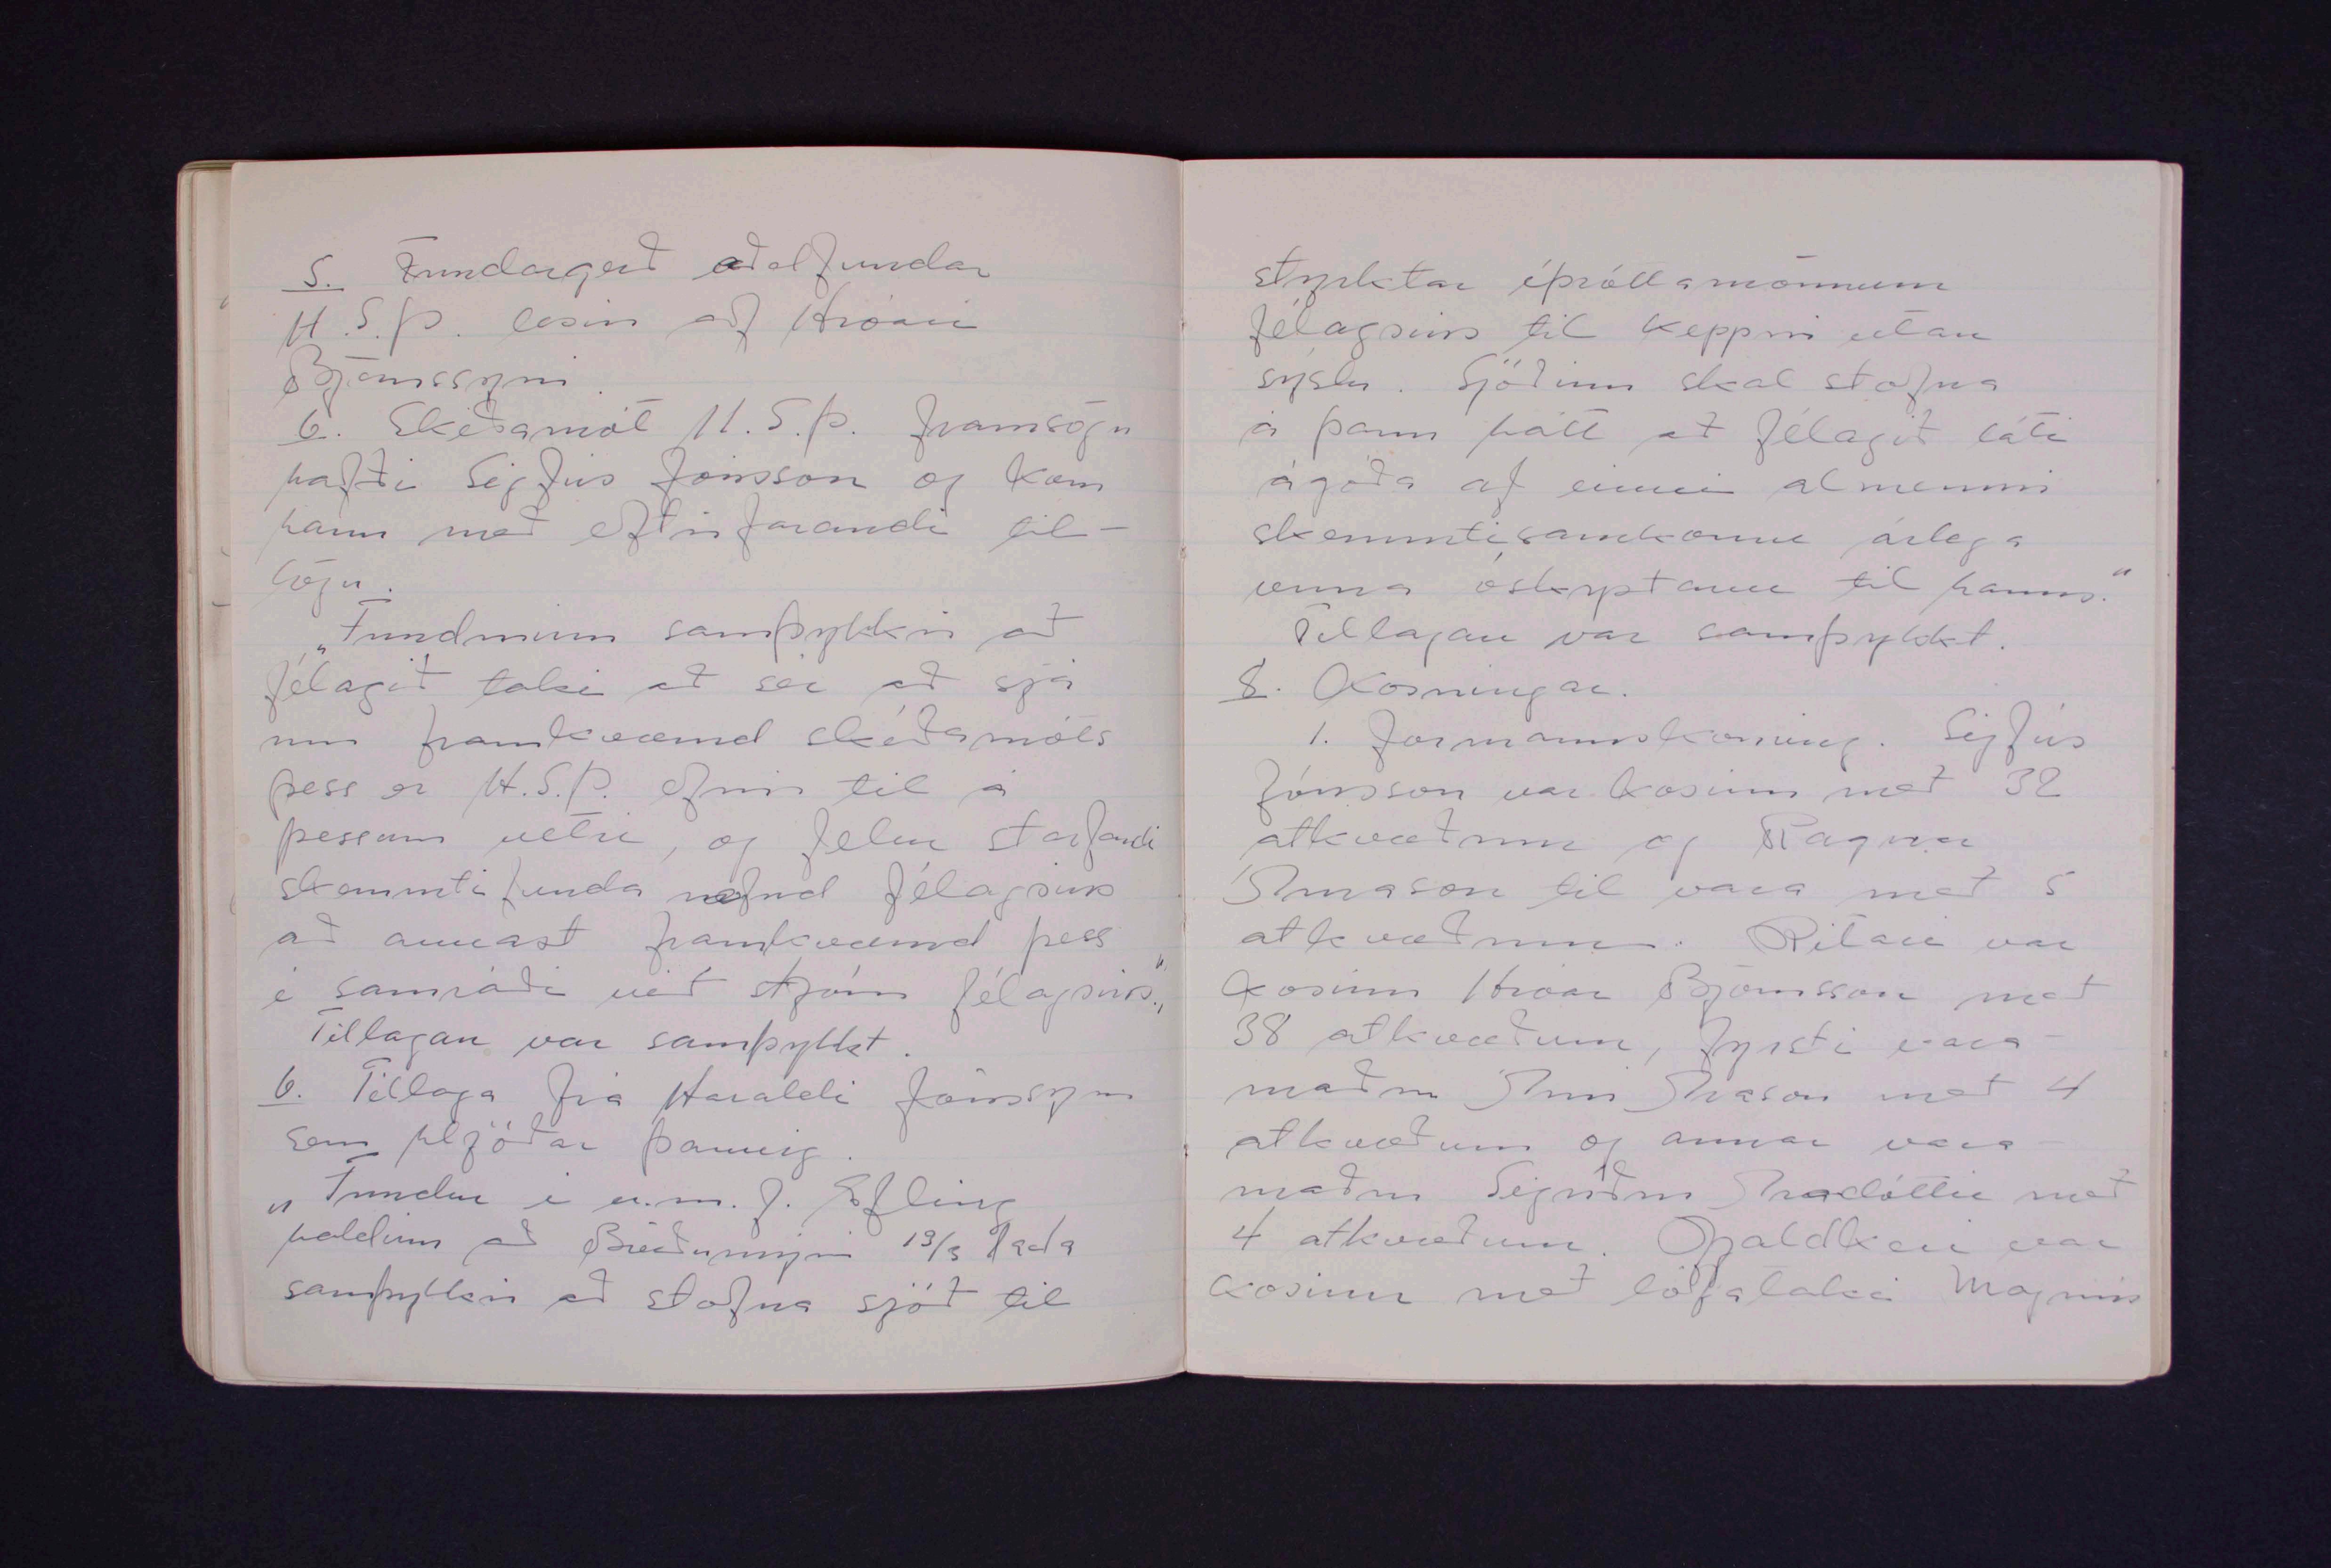 5. Fundargerð aðalfundar
H.S.Þ. lesin af Hróari
Björnssyni.
6. Skíðamót H.S.Þ. framsögu
hafði Sigfús Jónsson og kom
hann með eftirfarandi til-
lögu.
„Fundurinn samþykkir að
félagið taki að sér að sjá
um framkvæmd skíðamóts
þess er H.S.Þ. efnir til á
þessum vetri, og felur starfandi
skemmtifundanefnd félagsins
að annast framkvæmd þess
í samráði við stjórn félagsins."
Tillagan var samþykkt.
6. Tillaga frá Haraldi Jónssyni
sem hljóðar þannig.
„Fundur í u.m.f. Efling
haldinn að Breiðumýri 19/3
samþykkir að stofna sjóð til
styrktar íþróttamönnum
félagsins til keppni utan
sýslu. Sjóðinn skal stofna
á þann hátt að félagið láti
ágóða af einni almennri
skemmtisamkomu árlega
renna óskiptann til hanns."
Tillagan var samþykkt.
8. Kosningar.
1. Formannskosning. Sigfús
Jónsson var kosinn með 32
atkvæðum og Ragnar
Árnason til vara með 5
atkvæðum. Ritari var
kosinn Hróar Björnsson með
38 atkvæðum, fyrsti vara-
maður Árni með 4
atkvæðum og annar vara-
maður Sigríður með
4 atkvæðum. Gjaldkeri var
kosinn með lófataki Magnús